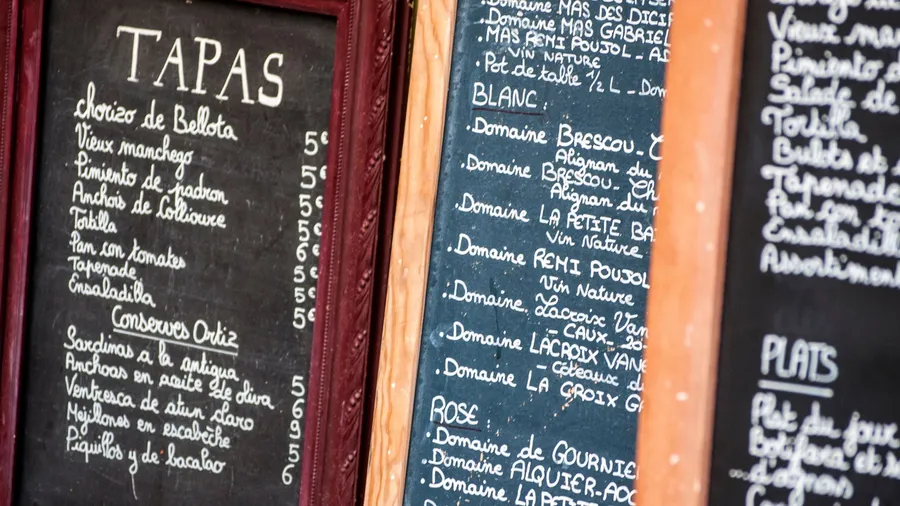 TAPAS
chorizo de Bellota 5€
Vieux manchego 5€
Pimiento de padron 5€
Anchois de Collioure 6€
Tortilla 5€
Pan con tomates 5€
Tapenade 5€
Ensaladilla
Conserves Ortiz
Sardinas a la antigua 5
Anchoas en aceite de oliva 6
Ventresca de atun claro 9
Mejillones en escabèche 5
Piquillos y de bacalao 6
.Domaine MAS DES
.Domaine MAS GABRIEL
.MAS REMI POUJOL -
VIN NATURE
.Pot de table 1/2 L -
BLANC :
.Domaine BRESCOU -
Alignan du
.Domaine BRESCOU -
Alignan du
.Domaine LA PETITE
Vin Nature
.Domaine REMI POUJOL
Vin Nature
.Domaine Lacroix
- CAUX -
.Domaine LACROIX
- coteaux
.Domaine LA CROIX
ROSE :
.Domaine de
.Domaine ALQUIER -
.Domaine LA PETITE
Vieux
Pimiento
Salade de
Tortilla
Bulots et
Tapenade
Pan con
PLATS
Plat du jour
Botifara et
d'oignons